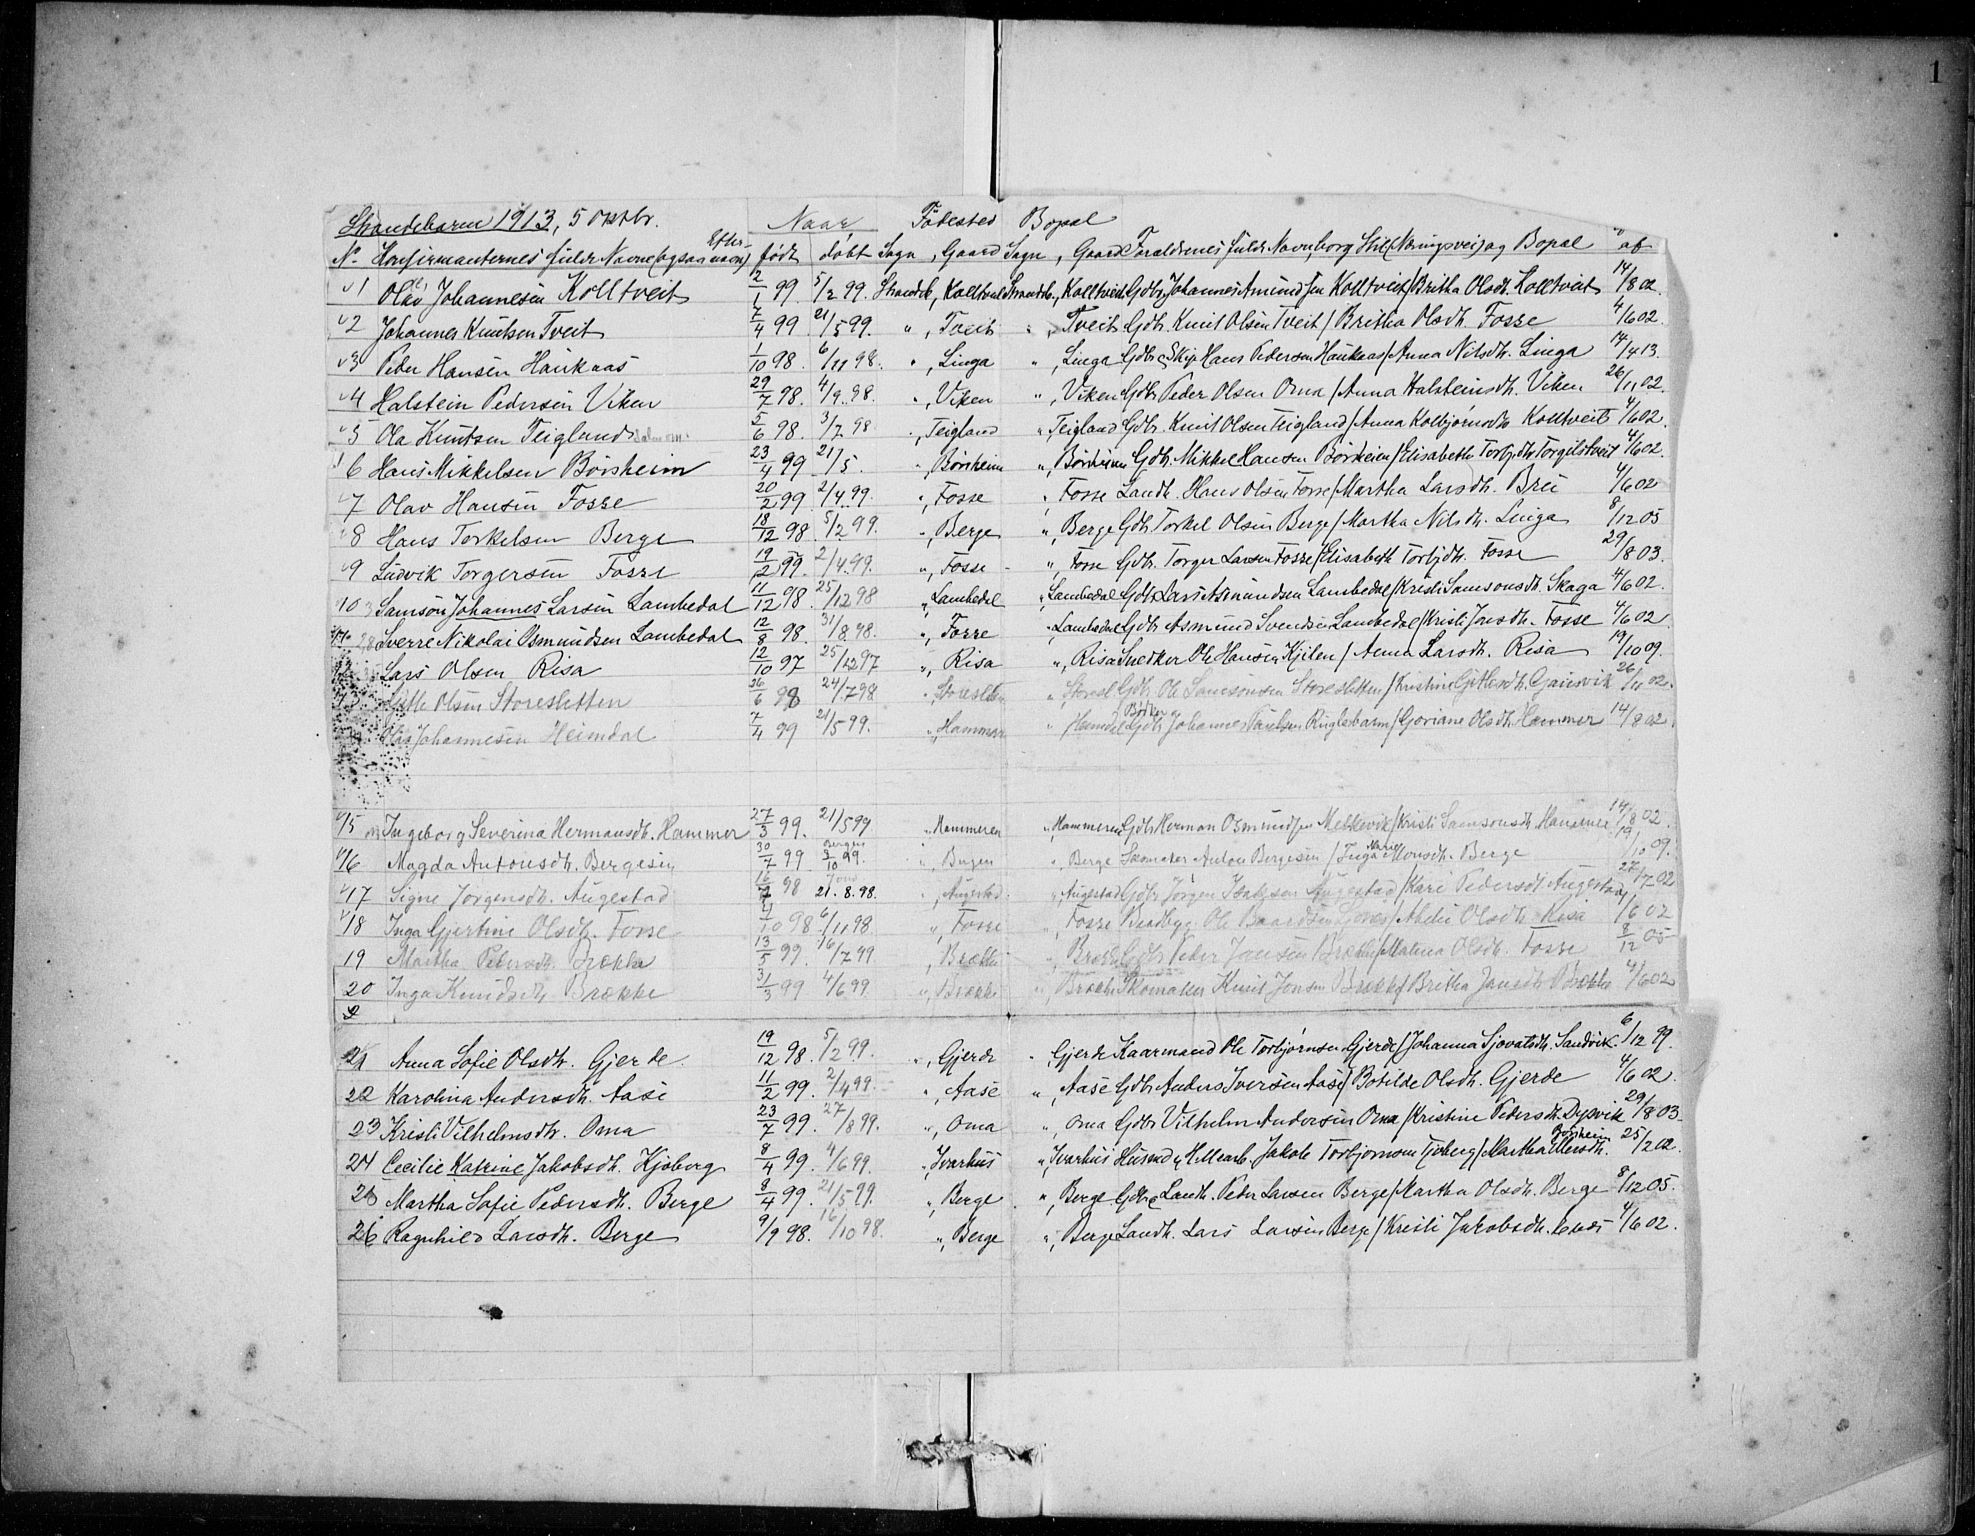 1
Strandebarm 1913, 5 oktbr. Naar Födested Bopæl
No Konfirmanternes fulde Navne (ogsaa Efternavn) født døbt Sogn, Gaard Sogn, Gaard Foræld­renes fulde Navn, borg. Stil (Næringsvei) og Bopæl af
1 Olav Johannesen Kolltveit 2/1 99 5/2 99. Strandeb., Kolltveit Strandb., Kolltveit Gdbr. Johannes Amundsen Kolltveit / Britha Olsdt. Kolltveit 14/8 02.
2 Johannes Knutsen Tveit 7/4 99 21/5 99. " , Tveit " , Tveit Gdbr. Knut Olsen Tveit / Britha Olsdt. Fosse 4/6 02.
3 Peder Hansen Haukaas 1/10 98. 6/11 98. " , Linga " , Linga Gdbr. & Skip. Hans Pedersen Haukaas / Anna Nilsdt. Linga 14/4 13.
4 Halstein Pedersen Viken 29/7 98. 4/9 98. " , Viken " , Viken Gdbr. Peder Olsen Oma / Anna Halsteinsdt. Viken 26/11 02.
5 Ola Knutsen Teigland 5/6 98. 3/7 98 " , Teigland " , Teigland Gdbr. Knut Olsen Teigland / Anna Kolbjørnsdt. Kolltveit 4/6 02.
6 Hans Mikkelsen Börsheim 23/4 99 21/5. " Börsheim " , Börsheim Gdbr. Mikkel Hansen Börsheim / Elisabeth Torbjdtr. Torgilstveit 4/6 02.
7 Olav Hansen Fosse 20/2 99 2/4 99. " , Fosse " , Fosse Landh. Hans Olsen Fosse / Martha Larsdt. Brei 4/6 02
8 Hans Torkelsen Berge 18/12 98. 5/2 99. " , Berge " , Berge Gdbr. Torkel Olsen Berge / Martha Nilsdt. Linga 8/12 05
9 Ludvik Torgersen Fosse 19/2 99. 2/4 99. " , Fosse " , Fosse Gdbr. Torger Larsen Fosse / Elisabeth Torbjdt. Fosse 29/8 03.
10 Samson Johannes Larsen Lambedal 11/12 98. 25/12 98 " , Lambedal " , Lambedal Gdbr. Lars Asmundsen Lambedal / Kristi Samsonsdt. Skaga 4/6 02.
Sverre Nikolai Osmundsen Lambedal 12/8 98. 31/8 98. " , Fosse " , Lambedal Gdbr. Asmund Svendsen Lambedal / Kristi Jonsdt. Fosse 4/6 02.
Lars Olsen Risa 12/10 97 25/12 97 " , Risa " , Risa Snedker Ole Hansen Kjilen / Anna Larsdt. Risa 19/10 09.
Gitle Olsen Storesletten 26/6 98 24/7 98 " , " , Gdbr. Ole Samsonsen Storesletten / Kristine Gitlesdt. Gausvik 26/11 02.
Johannesen Heimdal 7/4 99 21/5 99. " , Hammer " Gdbr. Johannes / Goriane Olsdt. Hammer 14/8 02.
15 Ingeborg Severina Hermansdt. Hammer 27/3 99. 21/5 99 " Hammeren " , Hammeren Gdbr. Herman Osmundsen / Kristi Samsonsdt. Hammer 14/8 02.
16 Magda Antonsdt. Bergesen 30/7 99 Bergen 3/10 99. " Bergen " , Berge Skomaker Anton Bergesen / Inga Monsdt. Berge 19/10 09.
17 Signe Jørgensdt. Augestad 16/7 98 21. 8. 98. " , Augestad. " , Augestad Gdbr. Jörgen Isaksen Augestad / Kari Pedersdt. Augestad 27/7 02
18 Inga Gjertine Olsdt. Fosse 10 98 6/11 98. " , Fosse " , Fosse Ole Baardsen / Olsdt. Risa 4/6 02
19 Martha Pedersdt. Brække 13/5 99. 16/7 99 " , Brække " , Brække Gdbr. Peder Jonsen Brække / Malena Olsdt. Fosse 8/12 05
20 Inga Knudsdt. Brække 31/3 99 4/6 99 " , Brække " , Brække Skomaker Knut Jonsen Brække / Britha Jansdt. Brække 4/6 02
21 Anna Sofie Olsdtr. Gjerde. 19/12 98. 5/2 99. " , Gjerde " , Gjerde Kaarmand Ole Torbjørnsen Gjerde / Johanna Sjovatsdt. Sandvik. 6/12 99.
22 Karolina Andersdt. Aase 11/2 99. 2/4 99. " , Aase " , Aase Gdbr. Anders Iversen Aase / Botilde Olsdt. Gjerde 4/6 02.
23 Kristi Vilhelmsdtr. Oma 23/7 99. 27/8 99. " , Oma " , Oma Gdbr. Vilhelm Andersen Oma / Kristine Pedersdt. Dysvik 29/8 03.
24 Cecilie Katrine Jakobsdt. Kjøberg 8/4 99. 4/6 99. " , Ivarhus " , Ivarhus Husmd. Jakob Torbjørnsen / Martha Olsdt. Börsheim 25/2 02.
25 Martha Sofie Pedersdt. Berge 8/4 99. 21/5 99. " , Berge " , Berge Gdbr. & Landh. Peder Larsen Berge / Martha Olsdt. Berge 8/12 05.
26 Ragnhild Larsdt. Berge 9/9 98. 16/10 98. " , Berge " , Berge Landh. Lars Larsen Berge / Kristi Jakobsdt. 4/6 02.